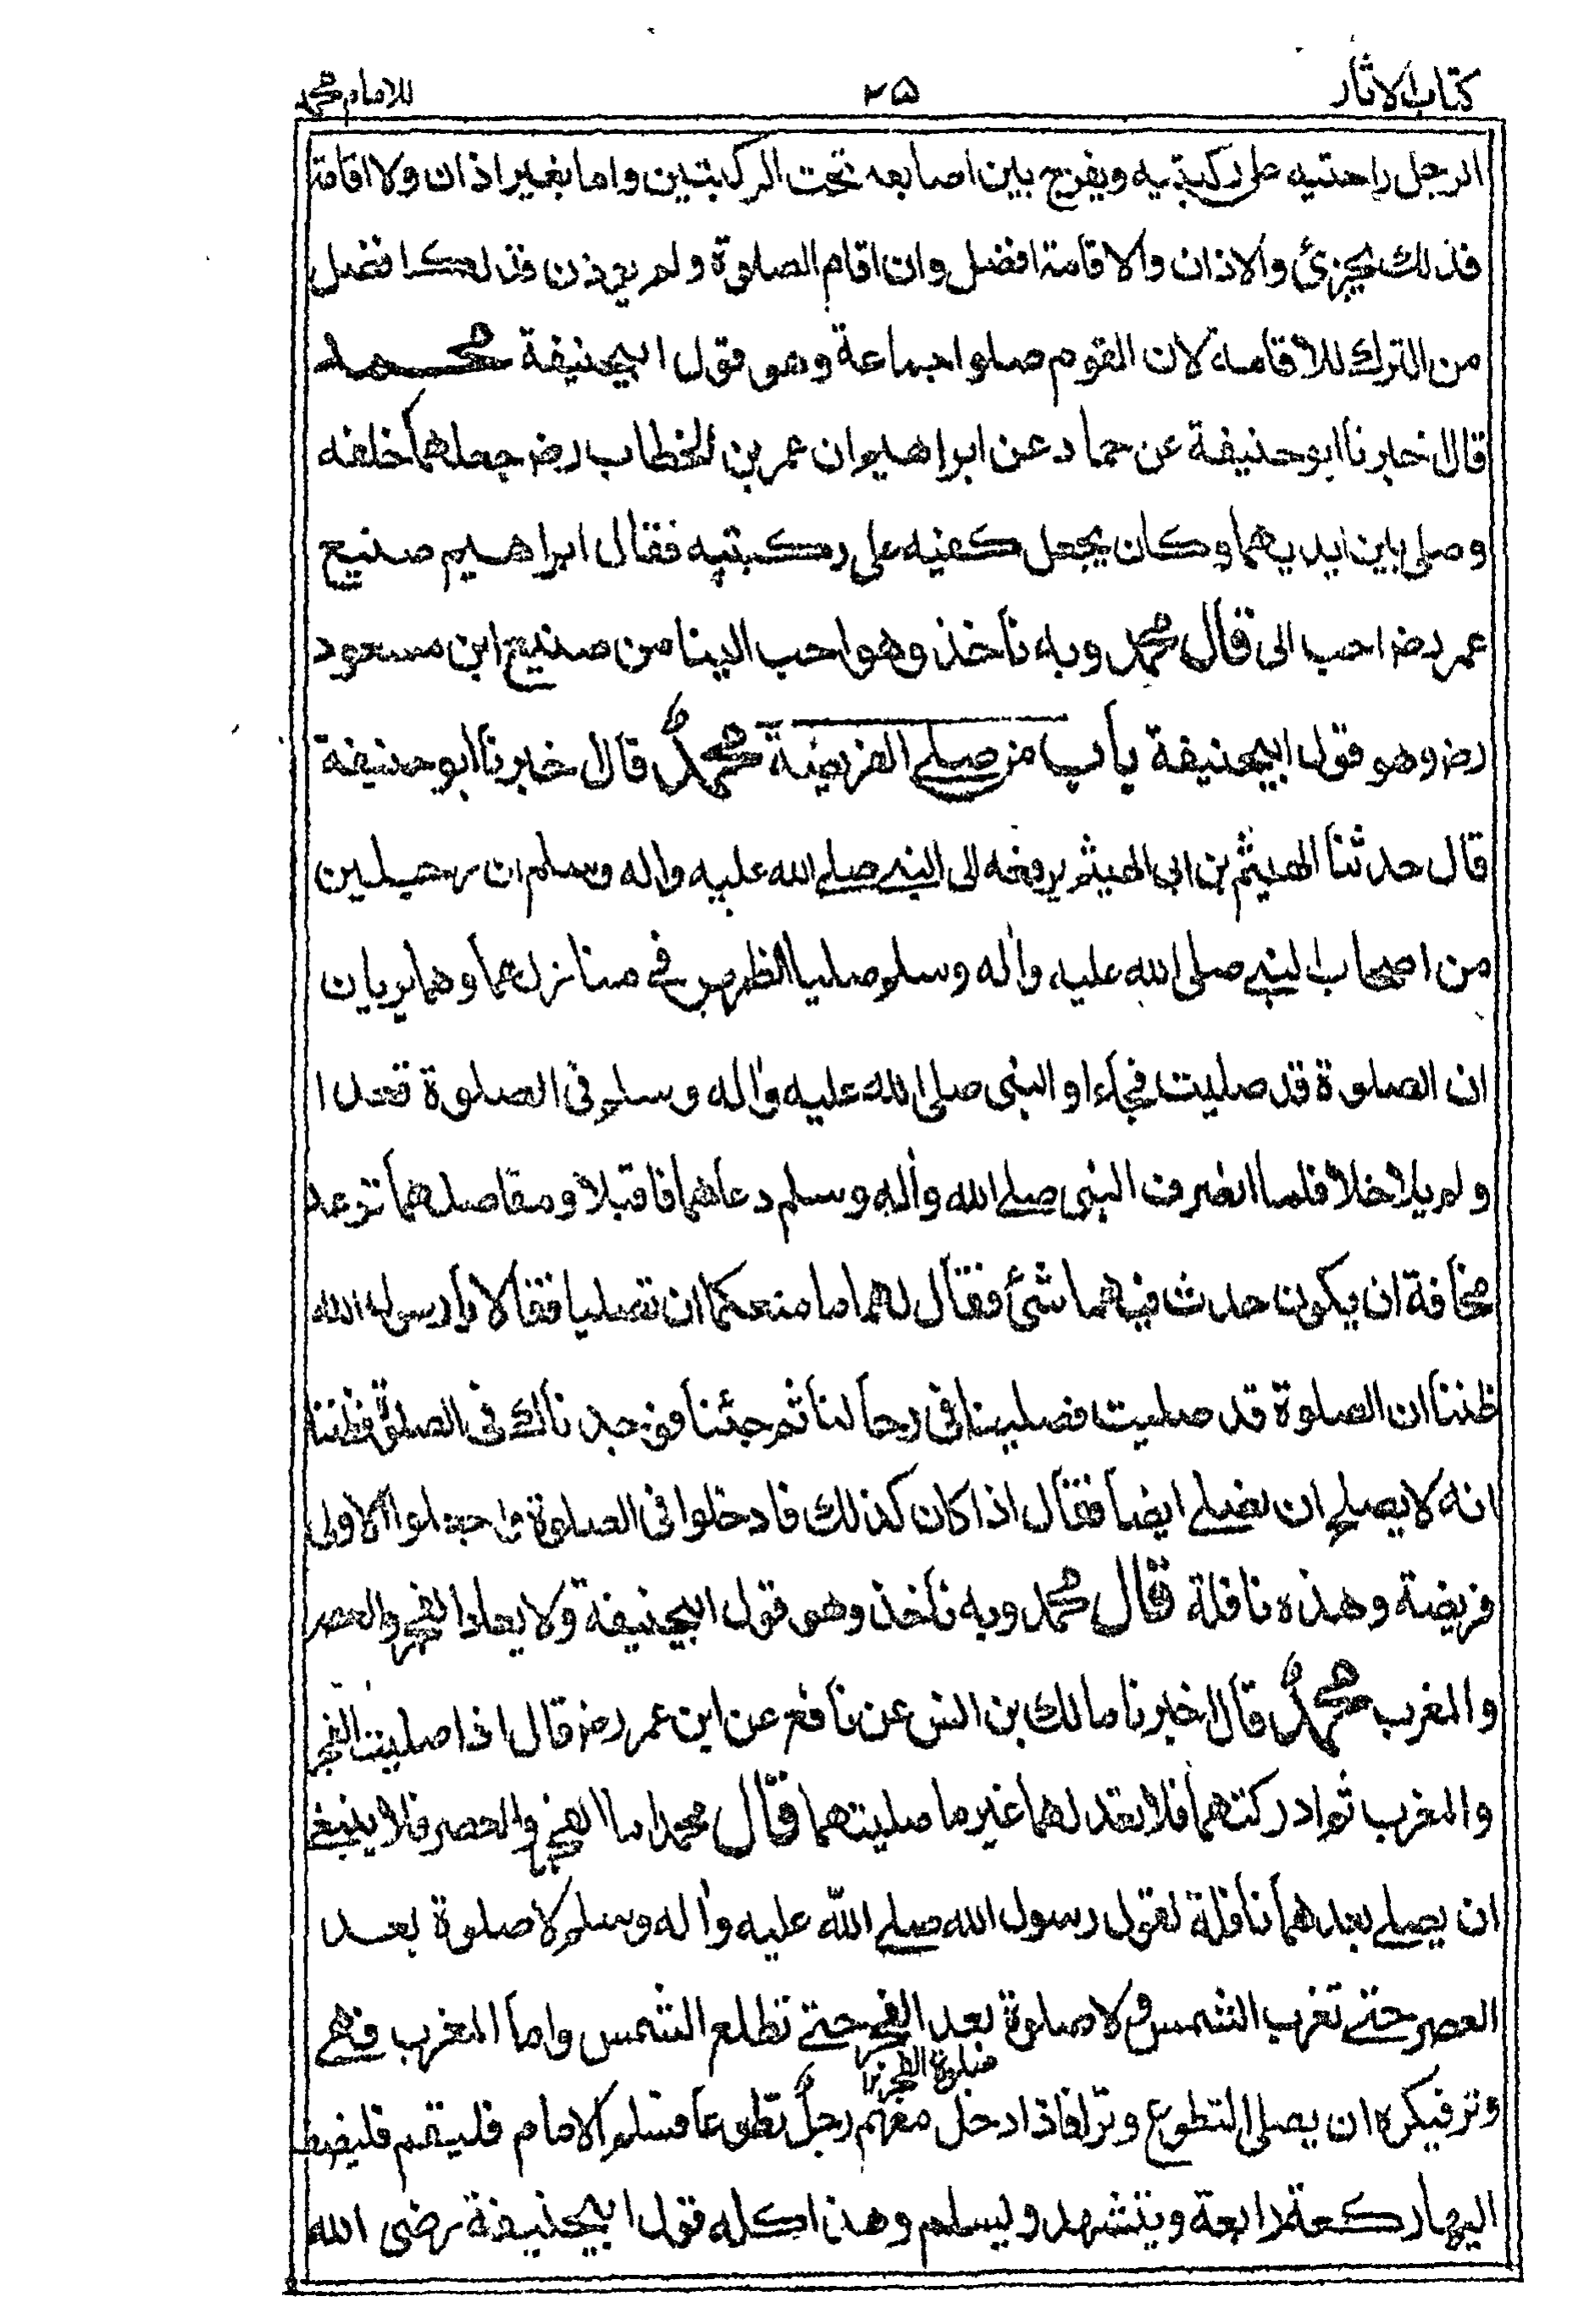 كتاب الاثار ٢٥ للامام محمد
الرجل راحتيه على ركبتيه ويفرج بين اصابعه تحت الركبتين واما بغير اذان ولا اقامة
فذلك يجزئ والاذان والاقامة افضل وان اقام الصلوة ولم يؤذن فذلك افضل
من الترك للاقامة لان القوم صلوا جماعة وهو قول ابيحنيفة محمد
قال اخبرنا ابوحنيفة عن حماد عن ابراهيم ان عمر بن الخطاب رضـ جعلهما خلفه
وصلى بين ايديهما وكان يجعل كفيه على ركبتيه فقال ابراهيم صنيع
عمر رضـ احب الى قال محمد وبه نأخذ وهو احب الينا من صنيع ابن مسعود
رضـ وهو قول ابيحنيفة باب من صلے الفريضة محمدٌ قال اخبرنا ابوحنيفة
قال حدثنا الهيثم بن ابى الهيثم يرفعه الى النبے صلے الله عليه واله وسلم ان رجلين
من اصحاب النبے صلى الله عليه واله وسلم صليا الظهر فے منازلهما وهما يريان
ان الصلوة قد صليت فجاءا والنبى صلى الله عليه واله وسلم فى الصلوة قعدا
ولم يدخلا فلما انصرف النبى صلے الله واله وسلم دعاهما فاقبلا ومفاصلهما ترعد
مخافة ان يكون حدث فيهما شئ فقال لهما ما منعكما ان تصليا فقالا يا رسول الله
ظننا ان الصلوة قد صليت فصلينا فى رحالنا ثم جئنا فوجدناك فى الصلوة فظننا
انه لا يصلح ان نصلے ايضا فقال اذا كان كذلك فادخلوا فى الصلوة واجعلوا الاولى
فريضة وهذه نافلة قال محمد وبه نأخذ وهو قول ابيحنيفة ولا يعاد الفجر والعصر
والمغرب محمدٌ قال اخبرنا مالك بن انس عن نافع عن ابن عمر رضـ قال اذا صليت الفجر
والمغرب ثم ادركتهما فلا تعد لهما غير ما صليتهما قال محمد اما الفجر والعصر فلا ينبغے
ان يصلے بعدهما نافلة لقول رسول الله صلے الله عليه واله وسلم لا صلوة بعد
العصر حتے تغرب الشمس ولا صلوة بعد الفجر حتے تطلع الشمس واما المغرب فهے
صلوة الفجر
وتر فيكره ان يصلى التطوع وترا فاذا دخل معهم رجلٌ تطوعا فسلم الامام فليقم فليضف
اليها ركعة رابعة ويتشهد وليسلم وهذا كله قول ابيحنيفة رضى الله